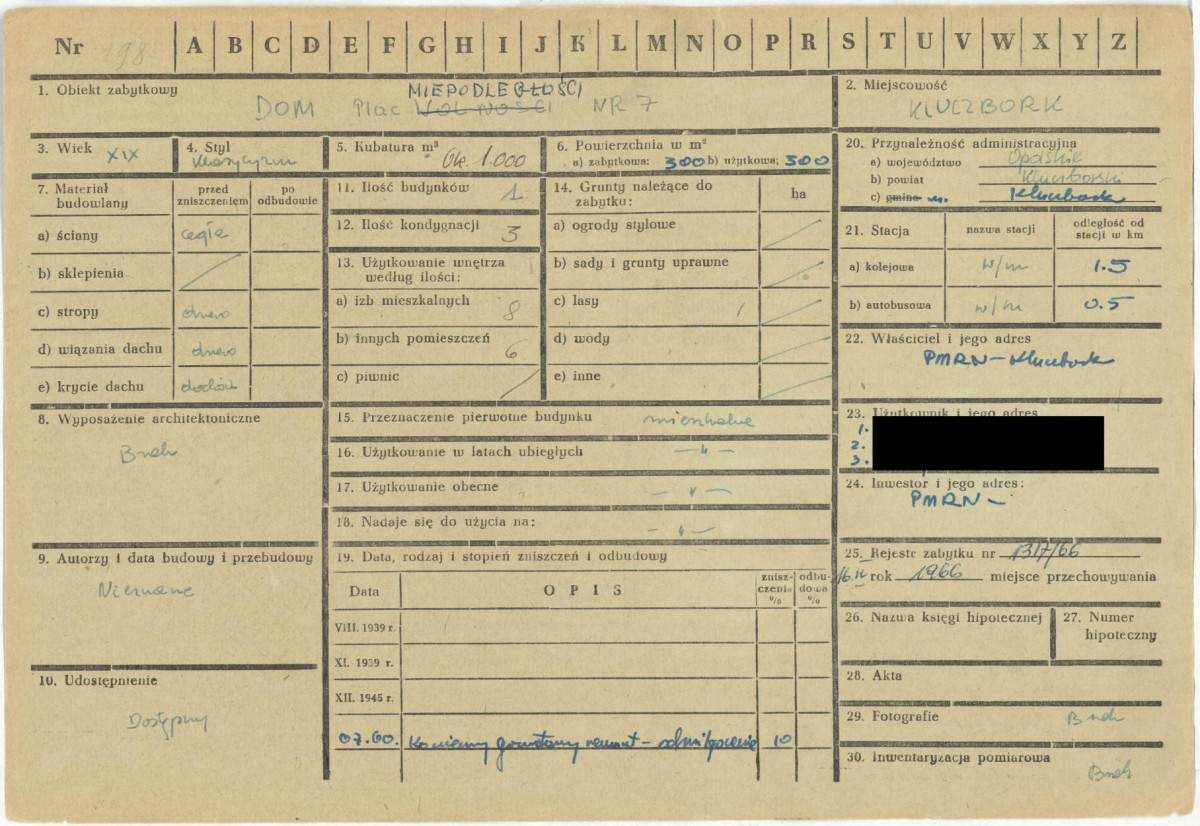 Nr 198 A B C D E F G H I J K L M N O P R S T U V W X Y Z
1. Obiekt zabytkowy
NIEPODLEGŁOŚCI
DOM Plac WOLNOŚCI NR 7
2. Miejscowość
KLUCZBORK
3. Wiek XIX
4. Styl
klasycyzm
5. Kubatura m³
Ok. 1.000
6. Powierzchnia w m²
a) zabytkowa: 300 b) użytkowa: 500
7. Materiał budowlany
przed zniszczeniem
po odbudowie
a) ściany cegła
b) sklepienia
c) stropy drewo
d) wiązania dachu drewo
e) krycie dachu dachów
8. Wyposażenie architektoniczne
Brak
9. Autorzy i data budowy i przebudowy
Nieznane
10. Udostępnienie
Dostępny
11. Ilość budynków 1
12. Ilość kondygnacji 3
13. Użytkowanie wnętrza
według ilości:
a) izb mieszkalnych 8
b) innych pomieszczeń 6
c) piwnic
14. Grunty należące do
zabytku:
ha
a) ogrody stylowe
b) sady i grunty uprawne
c) lasy
d) wody
e) inne
15. Przeznaczenie pierwotne budynku mieszkalne
16. Użytkowanie w latach ubiegłych — " —
17. Użytkowanie obecne — " —
18. Nadaje się do użycia na: — " —
19. Data, rodzaj i stopień zniszczeń i odbudowy
Data
OPIS
znisz-
czenia
%
odbu-
dowa
%
VIII. 1939 r.
XI. 1939 r.
XII. 1945 r.
07.60. Konieczny gruntowny remont – odwilgocenie 10
20. Przynależność administracyjna
a) województwo Opolskie
b) powiat Kluczborski
c) gmina m. Kluczbork
21. Stacja
nazwa stacji
odległość od
stacji w km
a) kolejowa w/m 1.5
b) autobusowa w/m 0.5
22. Właściciel i jego adres
PMRN – Kluczbork
23. Użytkownik i jego adres
1.
2.
3.
24. Inwestor i jego adres:
PMRN –
25. Rejestr zabytku nr 1317/66
rok 1966 miejsce przechowywania
26. Nazwa księgi hipotecznej
27. Numer
hipoteczny
28. Akta
29. Fotografie Brak
30. Inwentaryzacja pomiarowa
Brak